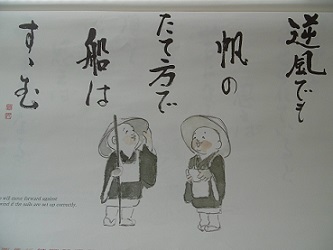 逆風でも
帆の
たて方で
船は
すゝむ
will move forward against
if the sails are set up correctly.